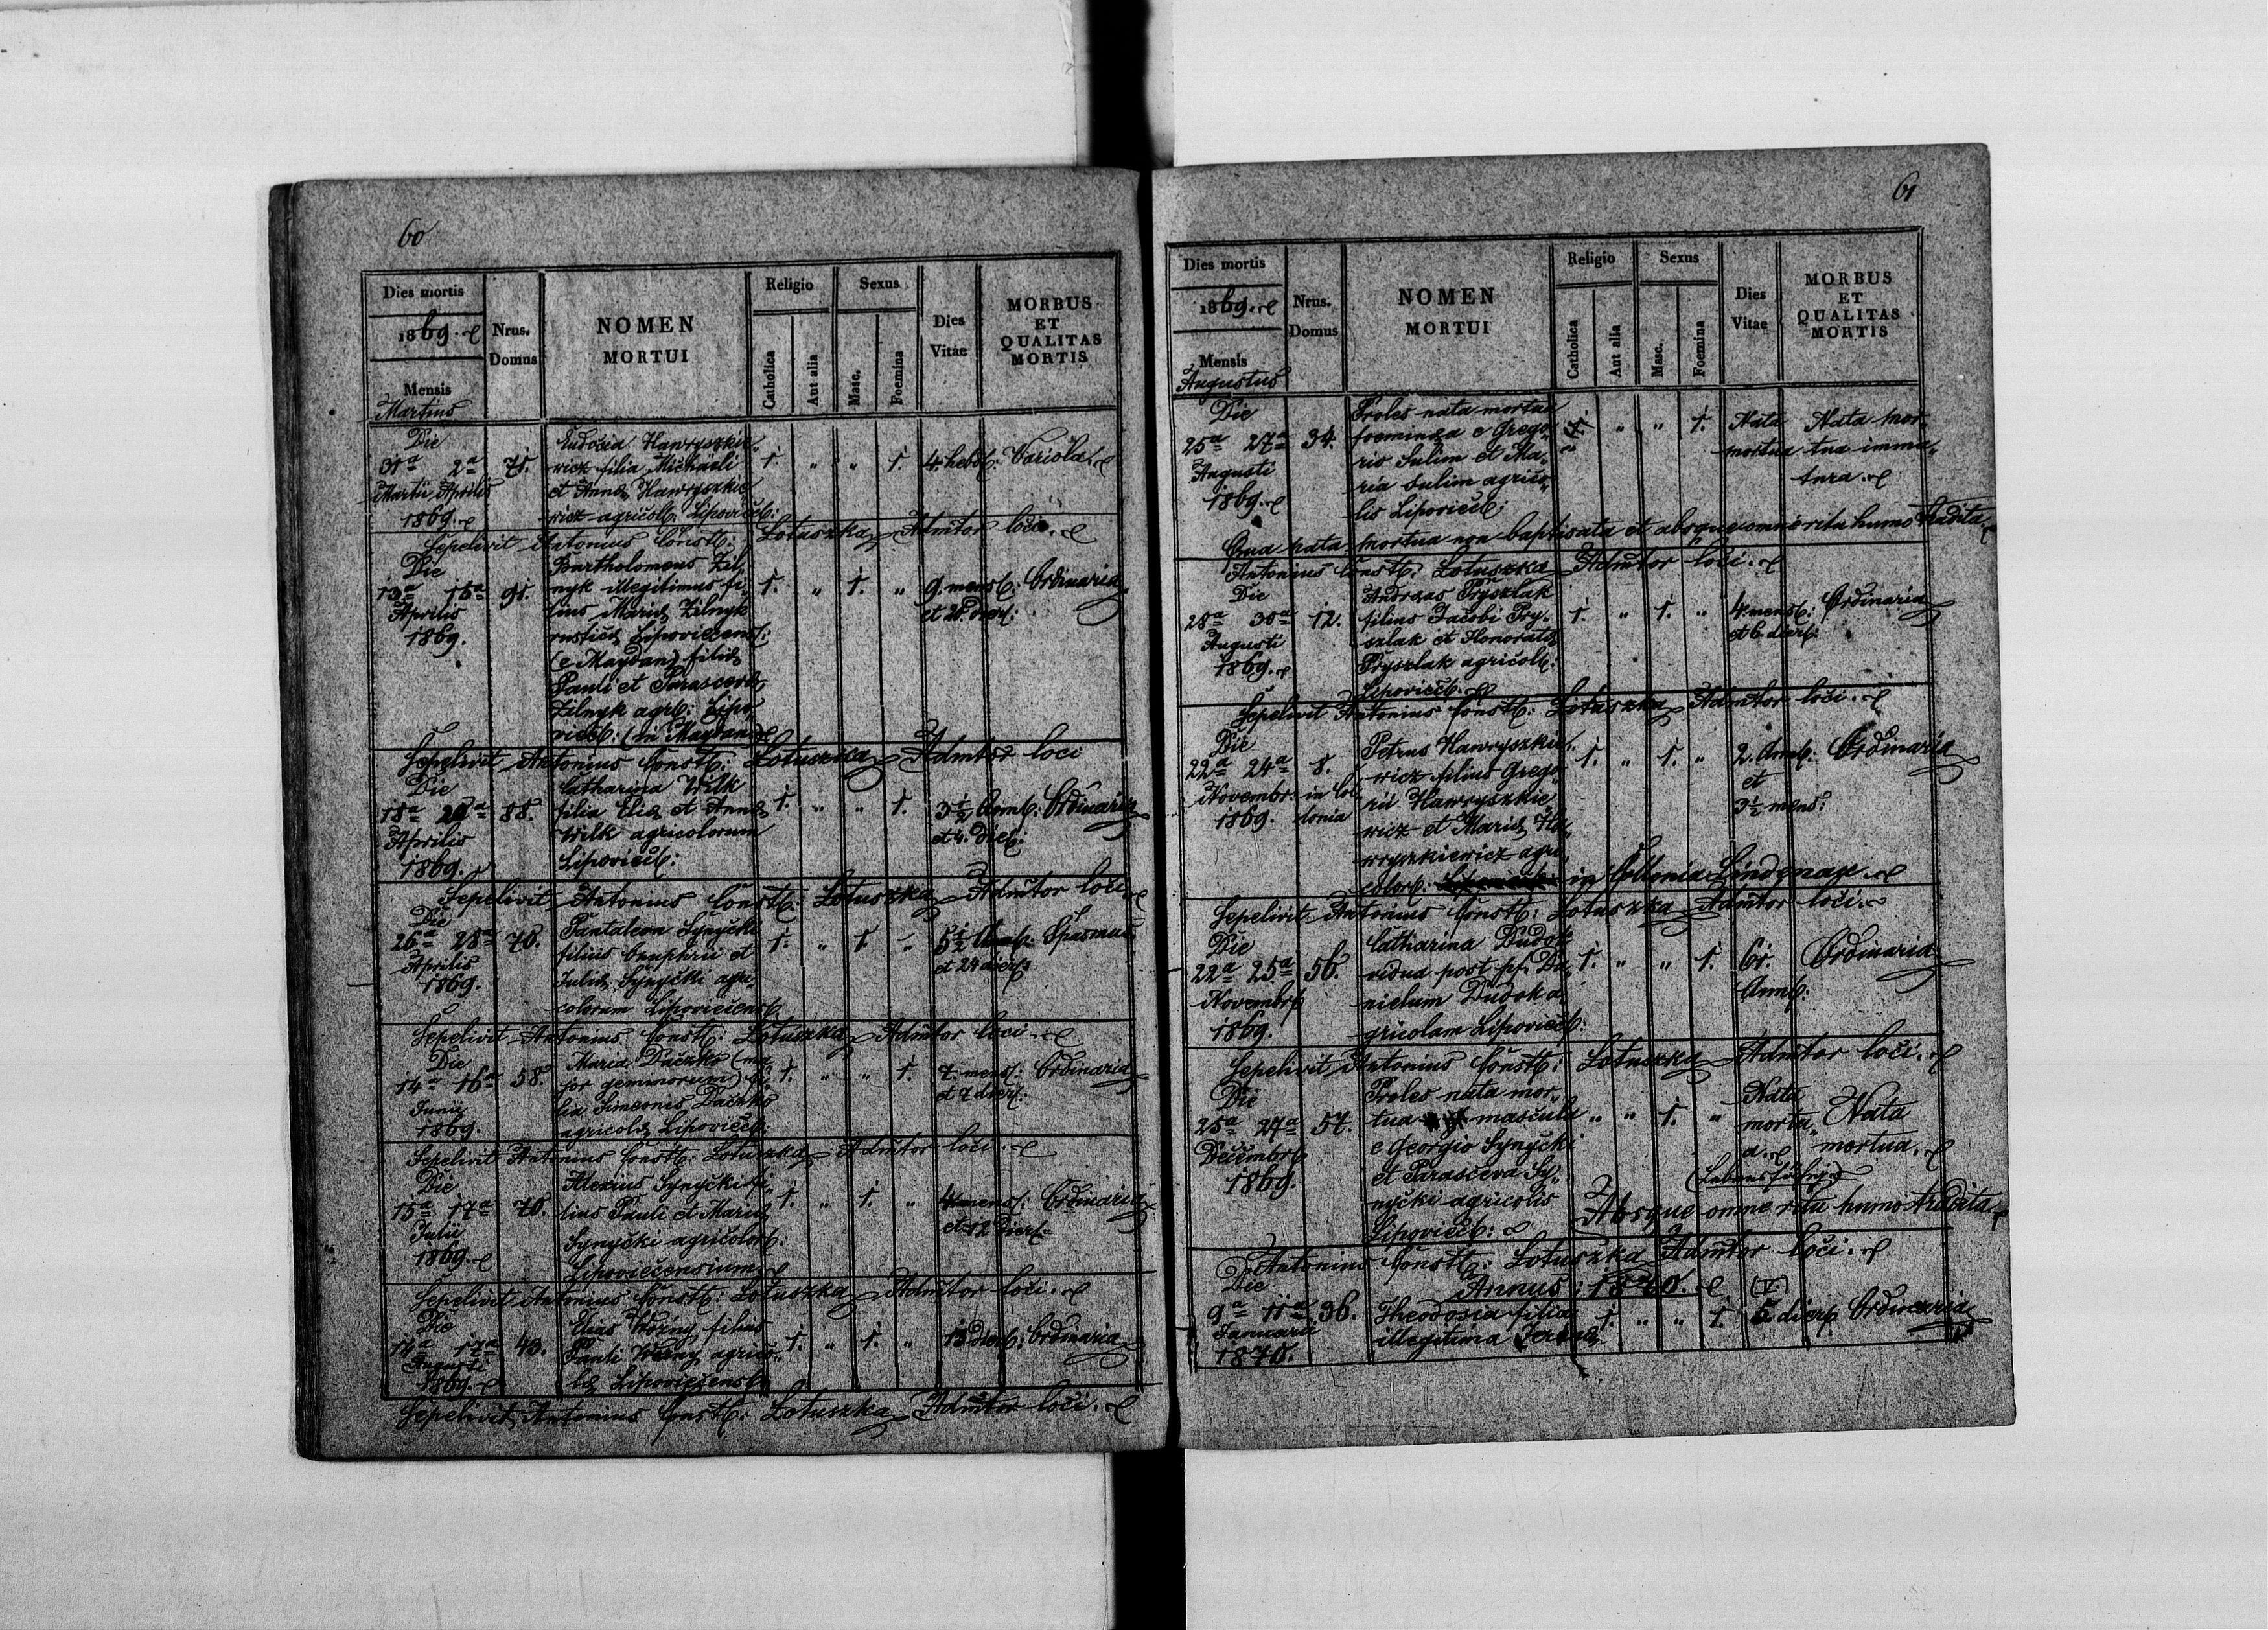 60
Dies mortis
1869.
Mensis
Martius
Nrus.
Domus
NOMEN
MORTUI
Religio
Catholica
Aut alia
Sexus
Masc.
Foemina
Dies
Vitae
MORBUS
ET
QUALITAS
MORTIS
Die
31a 2a
Martii Aprilis
1869.
71.
Eudocia Hawryszkie„
wicz filia Michaeli
et Anna Hawryszkie
wicz agricol: Lipovieč:
1. „ „ 1.
4 hebd: Variola
Sepelivit Antonius Const: Lotuszka Admtor loci.
Die
13a 15a
Aprilis
1869.
91.
Bartholomeus Zil„
nyk illegitimus fi„
lius Maria Zilnyk
rustica Lipoviečens:
(e Maydan) filia
Pauli et Parasceva
Zilnyk agr: Lipo
vieč: (in Maydan)
1. „ 1. „
9. mens: Ordinaria
et 21. dier:
Sepelivit Antonius Const: Lotuszka Admtor loci
Die
18a 20a
Aprilis
1869.
88.
Catharina Wilk
filia Elia et Anna
Wilk agricolorum
Lipovieč:
1. „ „ 1.
3½ Ann: Ordinaria
et 4. dier:
Sepelivit Antonius Const: Lotuszka Admtor loci
Die
26a 28a
Aprilis
1869.
70.
Pantaleon Synyčki
filius Onuphrii et
Julia Synyčki agri„
colorum Lipoviečens:
1. „ 1. „
5½ Spasmus
et 24 dier:
Sepelivit Antonius Const: Lotuszka Admtor loci.
Die
14a 16a
Junii
1869.
58.
Maria Dačzko (ma
jor geminorum) fi„
lia Simeonis Dačzko
agricola Lipovieč:
1. „ „ 1.
7. mens: Ordinaria
et 7 dier:
Sepelivit Antonius Const: Lotuszka Admtor loci.
Die
15a 17a
Julii
1869.
70.
Alexius Synyčki fi„
lius Pauli et Maria
Synyčki agricolor:
Lipoviečensium
1. „ 1. „
4 mens: Ordinaria
et 12 dier:
Sepelivit Antonius Const: Lotuszka Admtor loci.
Die
14a 17a
Augusti
1869.
43.
Elias Woźny filius
Pauli Woźny agrico„
la Lipoviečens:
1. „ 1. „
13 dier: Ordinaria
Sepelivit Antonius Const: Lotuszka Admtor loci.
61
Dies mortis
1869.
Mensis
Augustus
Nrus.
Domus
NOMEN
MORTUI
Religio
Catholica
Aut alia
Sexus
Masc.
Foemina
Dies
Vitae
MORBUS
ET
QUALITAS
MORTIS
Die
25a 27a
Augusti
1869.
34.
Proles nata mortua
foeminea e Grego„
rio Sulim et Ma„
ria Sulim agrico„
lis Lipovieč:
„ „ 1.
Nata
mortua
Nata mor„
tua imma„
tura.
Qua nata mortua non baptisata et absque omni ritu humo tradita
Antonius Const: Lotuszka Admtor loci.
Die
28a 30a
Augusti
1869.
12.
Andreas Pryszlak
filius Jacobi Pry„
szlak et Honorata
Pryszlak agricol:
Lipovieč:
1. „ 1. „
4 mens: Ordinaria
et 6. dier:
Sepelivit Antonius Const: Lotuszka Admtor loci.
Die
22a 24a
Novembr:
1869.
8.
in Col„
lonia
Petrus Hawryszkie„
wicz filius Grego„
rii Hawryszkie
wicz et Maria Ha„
wryszkiewicz agri„
color: in Collonia Lindenaxe.
1. „ 1. „
2. Ann:
et
3½ mens:
Ordinaria
Sepelivit Antonius Const: Lotuszka Admtor loci.
Die
22a 25a
Novembr:
1869.
56.
Catharina Dudok
vidua post pf: Da
nielum Dudok a„
gricolam Lipovieč:
1. „ „ 1.
61.
Ann:
Ordinaria
Sepelivit Antonius Const: Lotuszka Admtor loci.
Die
25a 27a
Decembr:
1869.
57.
Proles nata mor„
tua mascula
e Georgio Synyčki
et Parasceva Sy„
nyčki agricolis
Lipovieč:
„ „ 1. „
Nata
mortu„
a.
Nata
mortua.
Absque omne ritu humo tradita.
Antonius Const: Lotuszka Admtor loci.
Annus: 1870.
Die
9a 11a
Januarii
1870.
36.
Theodosia filia
illegitima
1. „ „ 1.
(V)
5. dier: Ordinaria